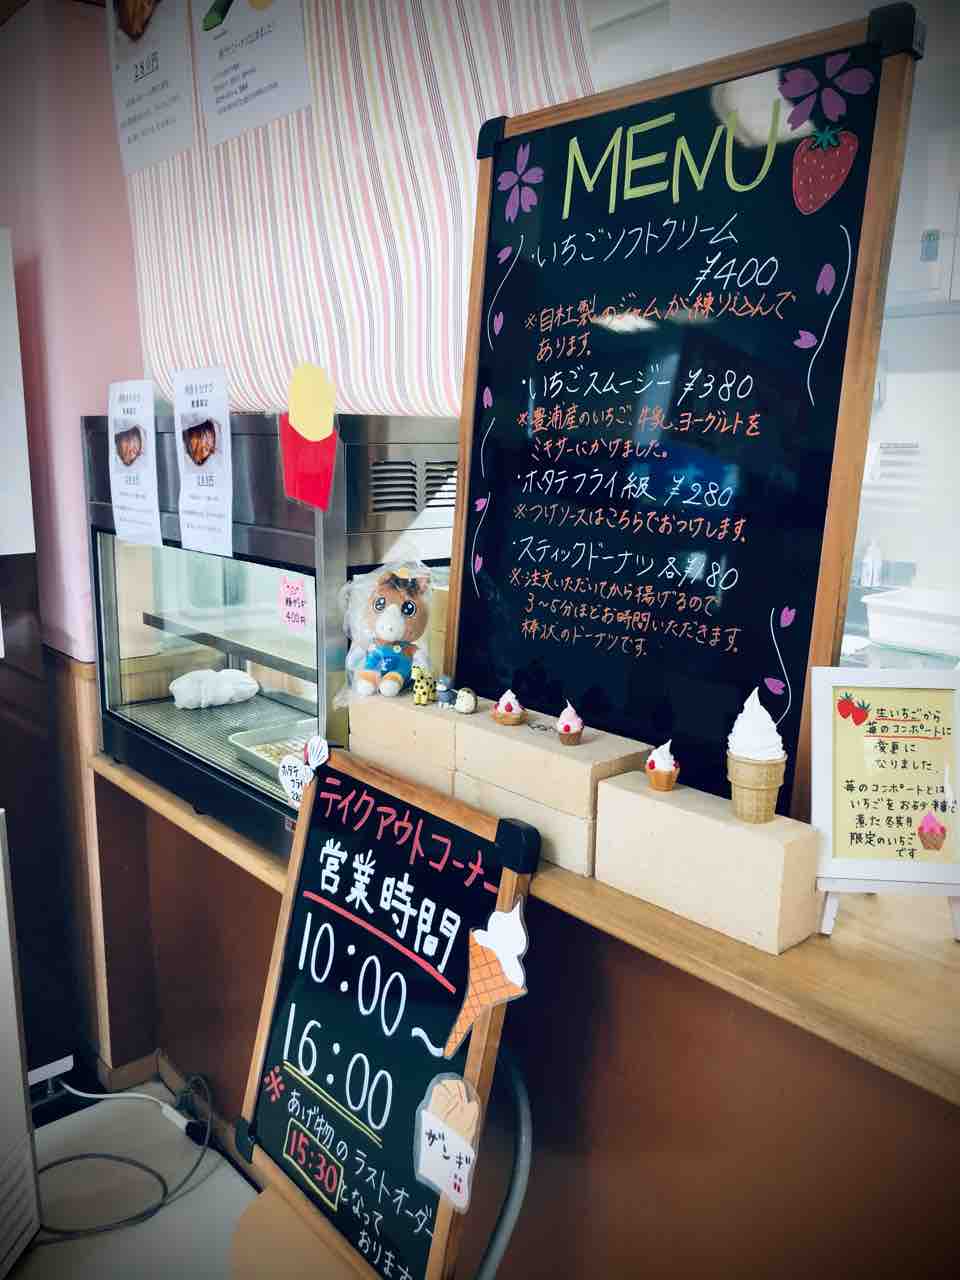 MENU
・いちごソフトクリーム
¥400
※自社製のジャムが練り込んで
あります。
・いちごスムージー ¥380
※豊浦産のいちご、牛乳、ヨーグルトを
ミキサーにかけました。
・ホタテフライ級 ¥280
※つけソースはこちらでおつけします。
・スティックドーナツ 各¥180
※注文いただいてから揚げるので
3～5分ほどお時間いただきます。
棒状のドーナツです。
テイクアウトコーナー
営業時間
10:00～
16:00
※あげ物のラストオーダー
15:30となって
おります
ザンギ
生いちごから
苺のコンポートに
変更に
なりました。
苺のコンポートとは
いちごをお砂糖で
煮た冬期
限定のいちご
です
280円
400円
ホタテ
フライ